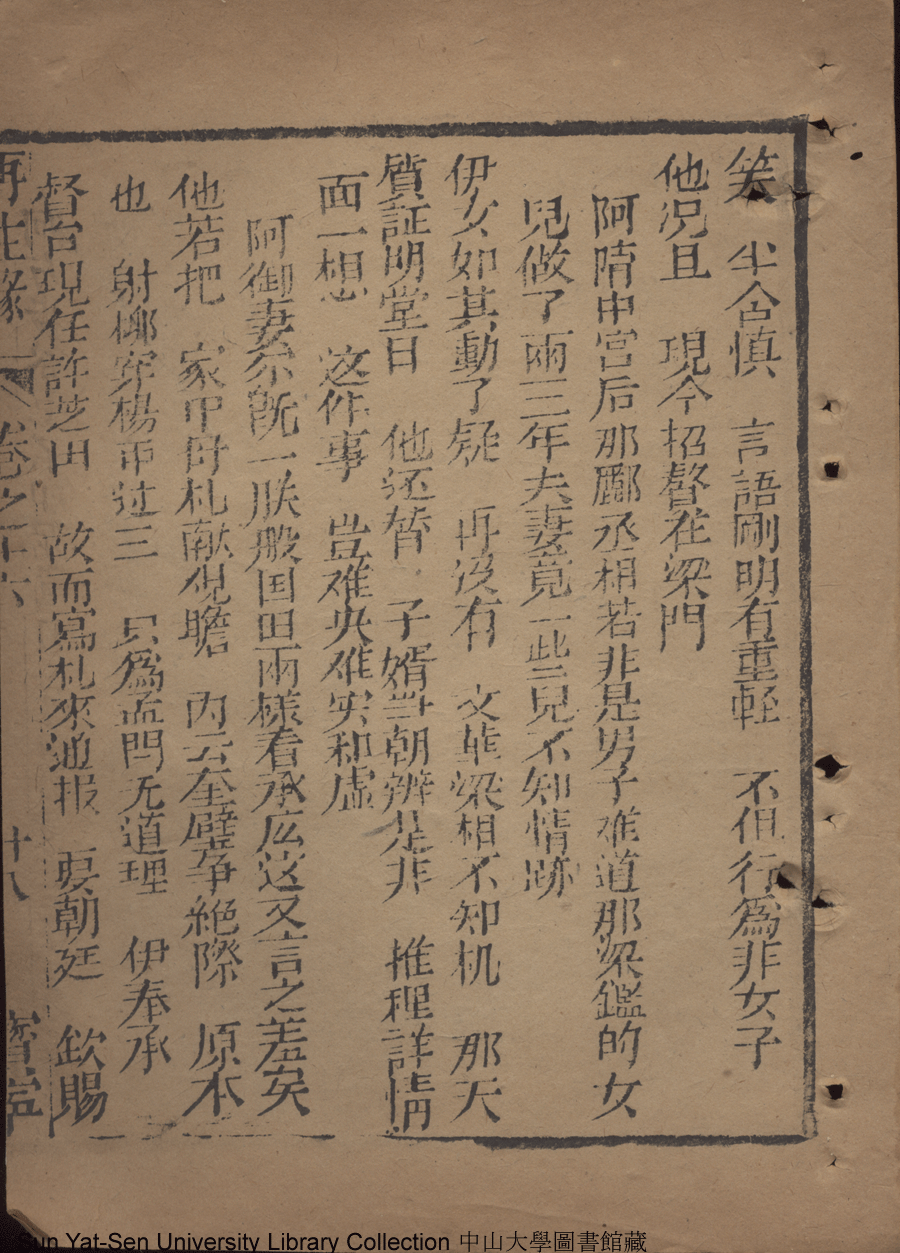 笑 半含慎 言語剛明有重輕 不但行爲非女子
他况且 現今招督在梁門
阿隋中宮后那酈丞相若非是男子难道那梁鑑的女
兒做了兩三年夫妻竟一些兒不知情跡
伊女如其動了疑 再沒有 文華梁相不知机 那天
質証明堂日 他还皆 子婿当朝辨是非 推程詳情
面一想 这件事 豈难央准实和虛
阿御妻尔既一朕般国田兩樣看承広这又言之羞矣
他若把 家中母札献
内云奎壁争絶際 原本
也 射柳穿楊中过三 只爲孟門无道理 伊奉承
督台現任許芝田 故而寫札來通报 要朝廷 欽賜
再生緣 卷之十六 十八 寳寧
Sun Yat-Sen University Library Collection 中山大學圖書館藏